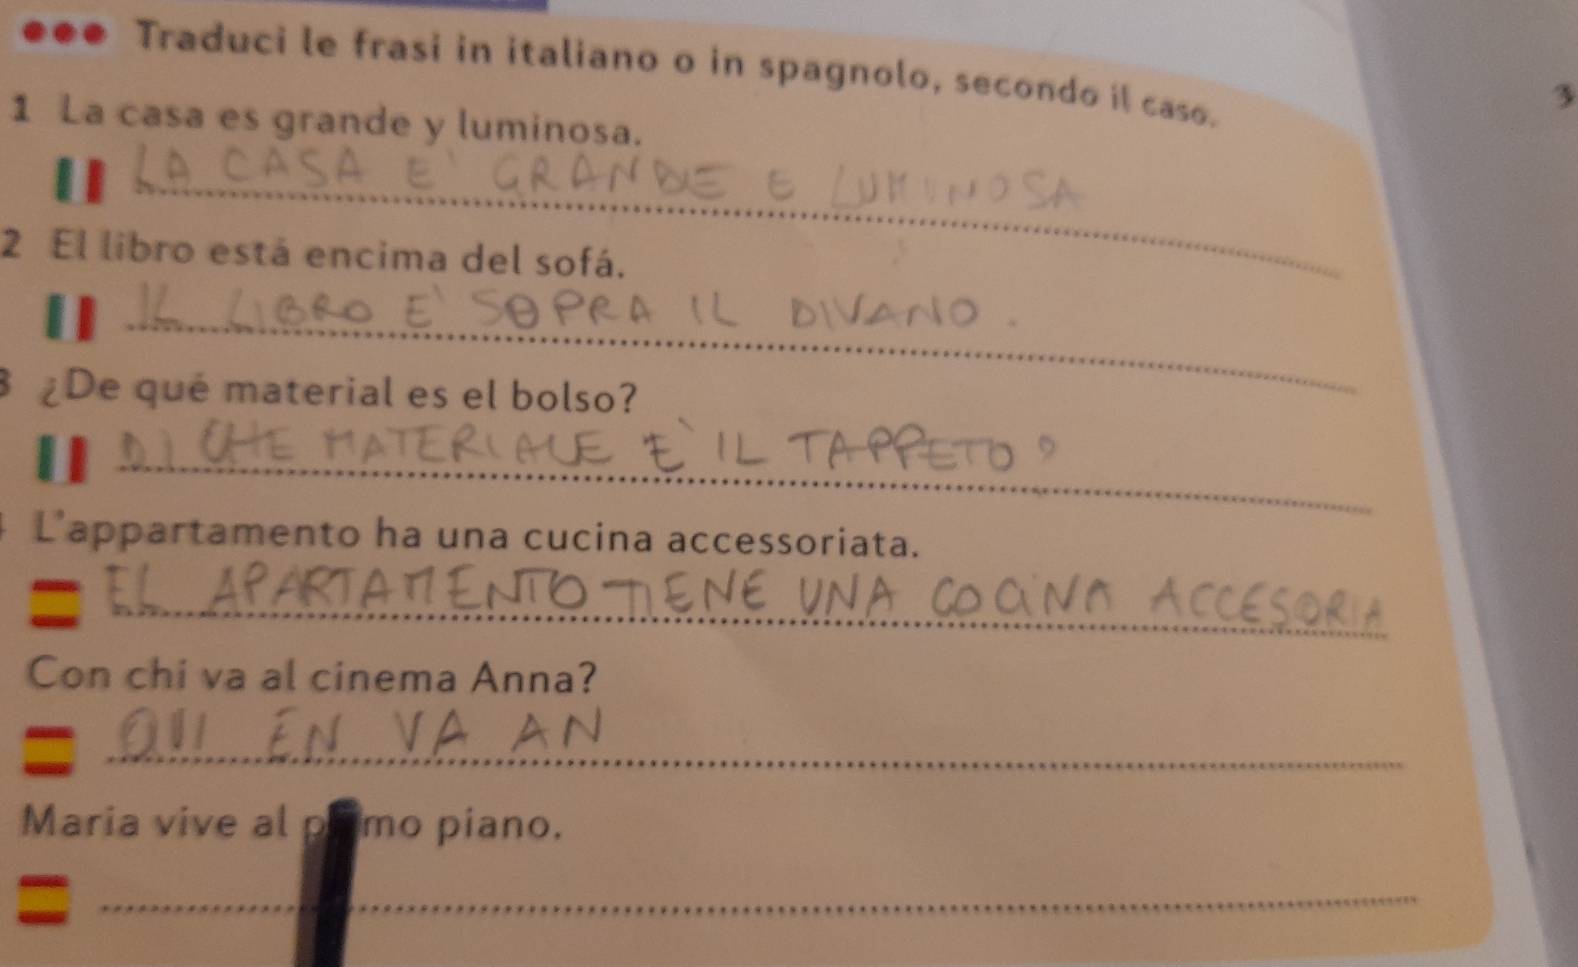 Traduci le frasi in italiano o in spagnolo, secondo il caso.
1 La casa es grande y luminosa.
LA CASA E' GRANDE E LUMINOSA
2 El libro está encima del sofá.
IL LIBRO E' SOPRA IL DIVANO.
3 ¿De qué material es el bolso?
DI CHE MATERIALE E' IL TAPPETO?
L'appartamento ha una cucina accessoriata.
EL APARTAMENTO TIENE UNA COCINA ACCESORIA
Con chi va al cinema Anna?
QUI EN VA AN
Maria vive al piano.